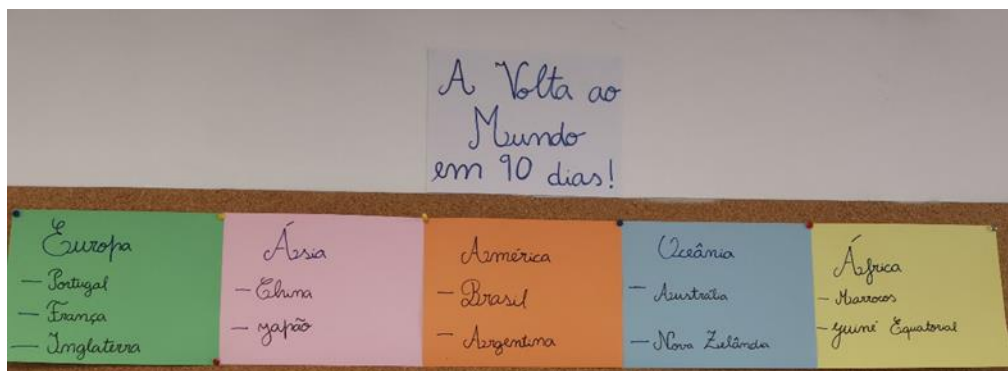 A Volta ao
Mundo
em 90 dias!
Europa
- Portugal
- França
- Inglaterra
Ásia
- China
- Japão
América
- Brasil
- Argentina
Oceânia
- Austrália
- Nova Zelândia
África
- Marrocos
- Guiné Equatorial